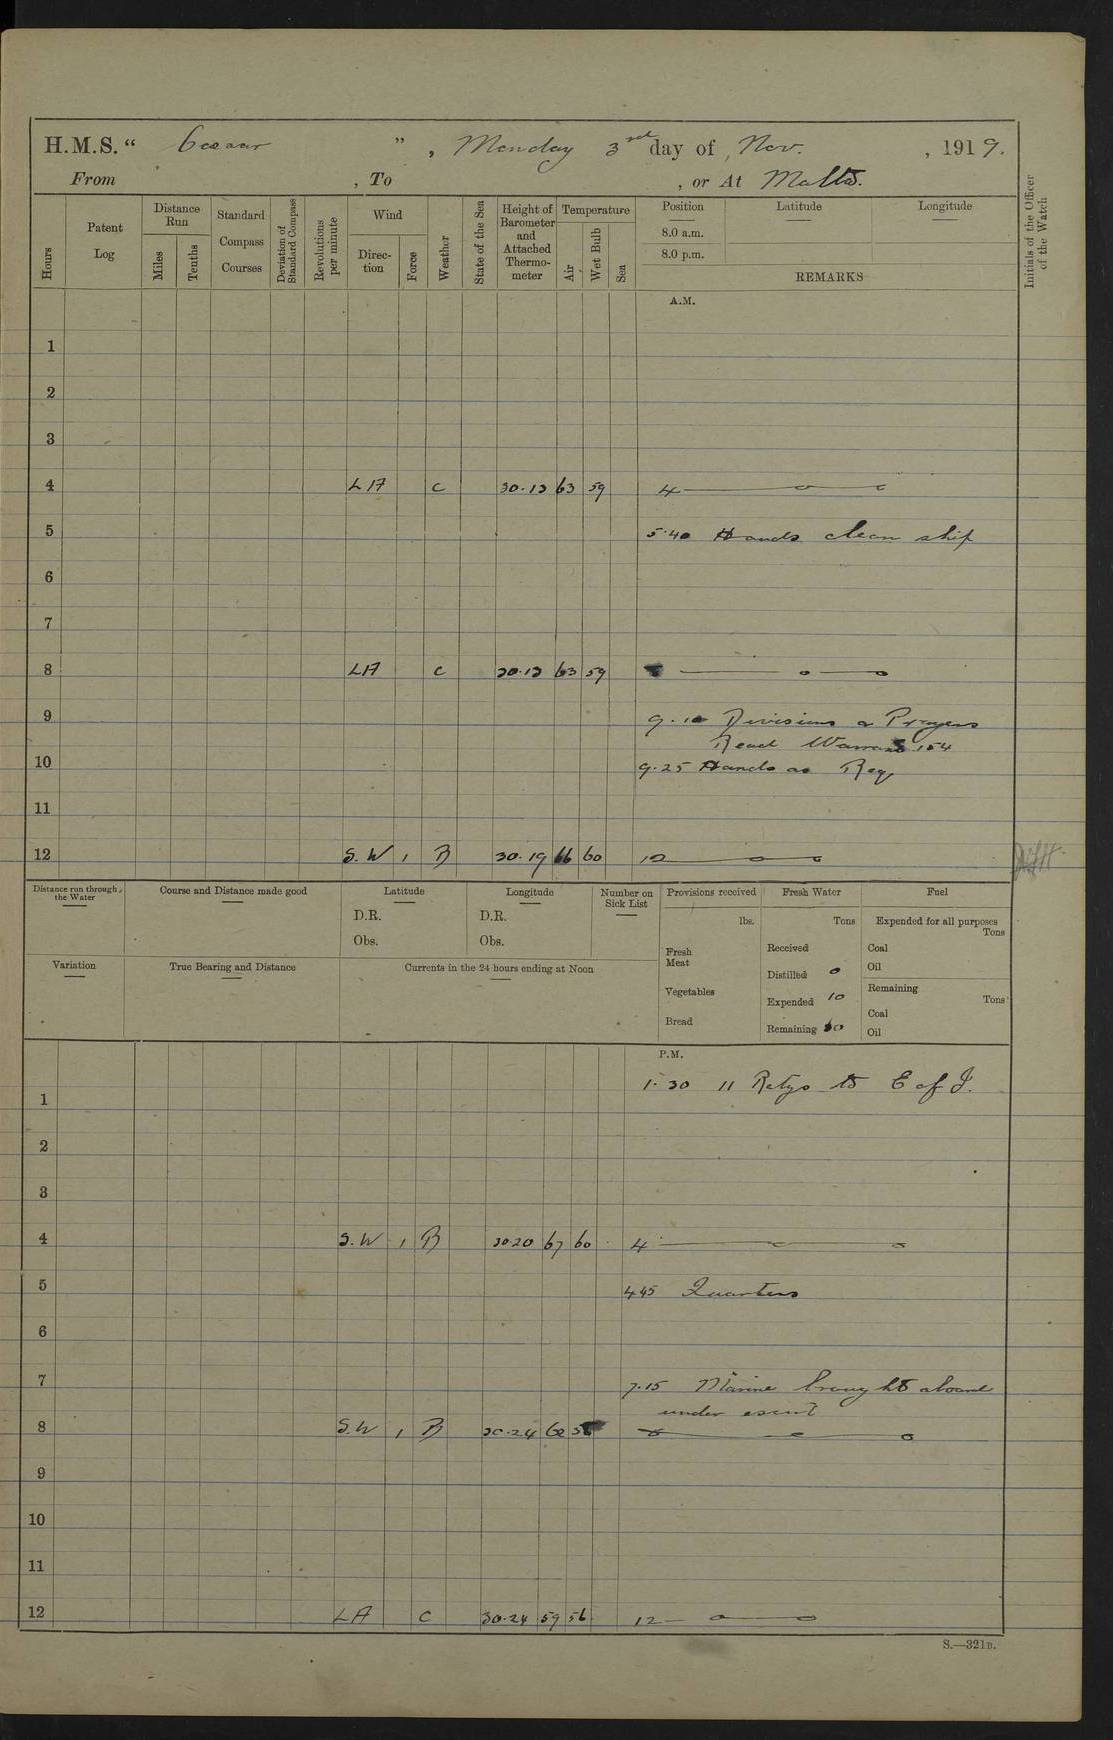 H.M.S. “ Caesar ” , Monday 3rd day of Nov. , 1919.
From , To , or At Malta.
Hours
Patent Log
Distance Run
Miles
Tenths
Standard Compass Courses
Deviation of Standard Compass
Revolutions per minute
Wind
Direction
Force
Weather
State of the Sea
Height of Barometer and Attached Thermometer
Temperature
Air
Wet Bulb
Sea
Position Latitude Longitude
8.0 a.m.
8.0 p.m.
REMARKS
Initials of the Officer of the Watch
A.M.
1
2
3
4 LA C 30.13 63 59 4
5 5.40 Hands clean ship
6
7
8 LA C 30.13 63 59
9 9.10 Divisions & Prayers
Read Warrant 154
10 9.25 Hands as Req
11
12 S.W 1 B 30.19 66 60 12
Distance run through the Water
Course and Distance made good
Latitude
D.R.
Obs.
Longitude
D.R.
Obs.
Number on Sick List
Provisions received
lbs.
Fresh Meat
Vegetables
Bread
Fresh Water
Tons
Received
Distilled 0
Expended 10
Remaining 60
Fuel
Expended for all purposes
Tons
Coal
Oil
Remaining
Tons
Coal
Oil
Variation
True Bearing and Distance
Currents in the 24 hours ending at Noon
P.M.
1 1.30 11 Ratgs to E of I.
2
3
4 S.W 1 B 30 20 67 60 4
5 4 45 Quarters
6
7 7.15 Marine brought aboard
under escort
8 S.W 1 B 30.24 62 8
9
10
11
12 LA C 30.24 59 56 12
S.—321D.